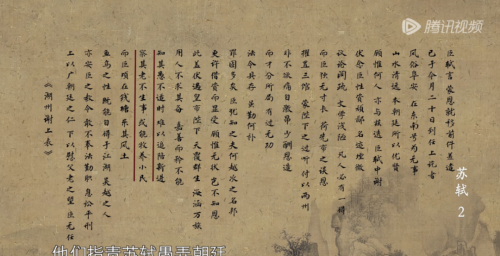 腾讯视频
臣轼言 蒙恩就移前件差遣
已于今月二十日到任上讫者
风俗阜安 在东南号为无事
山水清远 本朝廷所以优贤
顾惟何人 亦与兹选 臣轼中谢
伏念臣性资顽鄙 名迹堙微
议论阔疏 文学浅陋 凡人必有一得
而臣独无寸长 荷先帝之误恩
擢置三馆 蒙陛下之过听 付以两州
非不欲痛自激昂 少酬恩造
而才分所局 有过无功
法令具存 虽勤何补
罪固多矣 臣犹知之 夫何越次之名邦
更许借资而显受 顾惟无状 岂不知恩
此盖伏遇皇帝陛下 天覆群生 海涵万族
用人不求其备 嘉善而矜不能
知其愚不适时 难以追陪新进
察其老不生事 或能牧养小民
而臣顷在钱塘 乐其风土
鱼鸟之性 既能自得于江湖 吴越之人
亦安臣之教令 敢不奉法勤职 息讼平刑
上以广朝廷之仁 下以慰父老之望 臣无任
《湖州谢上表》
苏轼 2
他们指责苏轼愚弄朝廷